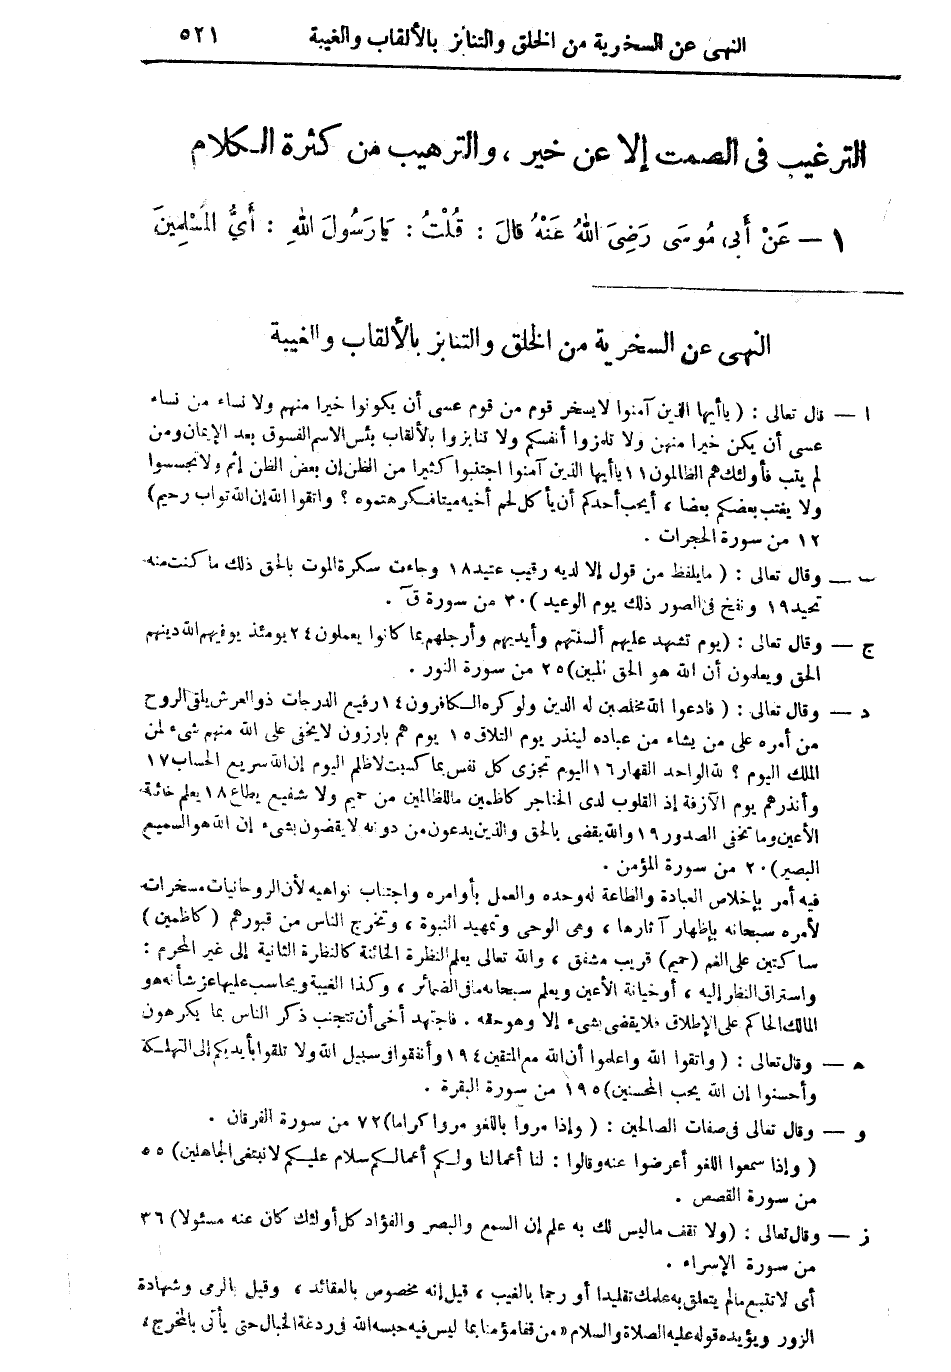 النهى عن السخرية من الخلق والتنابز بالألقاب والغيبة ٥٢١
الترغيب فى الصمت إلا عن خير ، والترهيب من كثرة الكلام
١ – عَنْ أَبِى مُوسَى رَضِىَ اللهُ عَنْهُ قَالَ : قُلْتُ : يَارَسُولَ اللهِ : أَىُّ الْمُسْلِمِينَ
النهى عن السخرية من الخلق والتنابز بالألقاب والغيبة
ا — قال تعالى : ( ياأيها الذين آمنوا لايسخر قوم من قوم عسى أن يكونوا خيرا منهم ولا نساء من نساء
عسى أن يكن خيرا منهن ولا تلمزوا أنفسكم ولا تنابزوا بالألقاب بئس الاسم الفسوق بعد الإيمان ومن
لم يتب فأولئك هم الظالمون ١١ ياأيها الذين آمنوا اجتنبوا كثيرا من الظن إن بعض الظن إثم ولا تجسسوا
ولا يغتب بعضكم بعضا ، أيحب أحدكم أن يأكل لحم أخيه ميتا فكرهتموه ؟ واتقوا الله إن الله تواب رحيم)
١٢ من سورة الحجرات .
ب — وقال تعالى : ( مايلفظ من قول إلا لديه رقيب عتيد ١٨ وجاءت سكرة الموت بالحق ذلك ما كنت منه
تحيد ١٩ ونفخ فى الصور ذلك يوم الوعيد ) ٣٠ من سورة قٓ .
ج — وقال تعالى : (يوم تشهد عليهم ألسنتهم وأيديهم وأرجلهم بما كانوا يعملون ٢٤ يومئذ يوفيهم الله دينهم
الحق ويعلمون أن الله هو الحق المبين) ٢٥ من سورة النور .
د — وقال تعالى : ( فادعوا الله مخلصين له الدين ولو كره الكافرون ١٤ رفيع الدرجات ذو العرش يلقى الروح
من أمره على من يشاء من عباده لينذر يوم التلاق ١٥ يوم هم بارزون لايخفى على الله منهم شىء لمن
الملك اليوم ؟ لله الواحد القهار ١٦ اليوم تجزى كل نفس بما كسبت لاظلم اليوم إن الله سريع الحساب ١٧
وأنذرهم يوم الآزفة إذ القلوب لدى الحناجر كاظمين ماللظالمين من حميم ولا شفيع يطاع ١٨ يعلم خائنة
الأعين وما تخفى الصدور ١٩ والله يقضى بالحق والذين يدعون من دونه لا يقضون بشىء إن الله هو السميع
البصير) ٢٠ من سورة المؤمن .
فيه أمر بإخلاص العبادة والطاعة له وحده والعمل بأوامره واجتناب نواهيه لأن الروحانيات مسخرات
لأمره سبحانه بإظهار آثارها ، وهى الوحى وتمهيد النبوة ، وتخرج الناس من قبورهم ( كاظمين )
ساكتين على الغم (حميم) قريب مشفق ، والله تعالى يعلم النظرة الخائنة كالنظرة الثانية إلى غير المحرم :
واستراق النظر إليه ، أو خيانة الأعين ويعلم سبحانه مافى الضمائر ، وكذا الغيبة ويحاسب عليها عز شأنه هو
المالك الحاكم على الإطلاق فلا يقضى بشىء إلا وهو حقه . فاجتهد أخى أن تتجنب ذكر الناس بما يكرهون
ه — وقال تعالى : ( واتقوا الله واعلموا أن الله مع المتقين ١٩٤ وأنفقوا فى سبيل الله ولا تلقوا بأيديكم إلى التهلكة
وأحسنوا إن الله يحب المحسنين) ١٩٥ من سورة البقرة .
و — وقال تعالى فى صفات الصالحين : ( وإذا مروا باللغو مروا كراما) ٧٢ من سورة الفرقان .
( وإذا سمعوا اللغو أعرضوا عنه وقالوا : لنا أعمالنا ولكم أعمالكم سلام عليكم لانبتغى الجاهلين) ٥٥
من سورة القصص .
ز — وقال تعالى : (ولا تقف ماليس لك به علم إن السمع والبصر والفؤاد كل أولئك كان عنه مسئولا) ٣٦
من سورة الإسراء .
أى لاتتبع مالم يتعلق به علمك تقليدا أو رجما بالغيب ، قيل إنه مخصوص بالعقائد ، وقيل الرمى وشهادة
الزور ويؤيده قوله عليه الصلاة والسلام « من قفا مؤمنا بما ليس فيه حبسه الله فى ردغة الخبال حتى يأتى بالمخرج ،